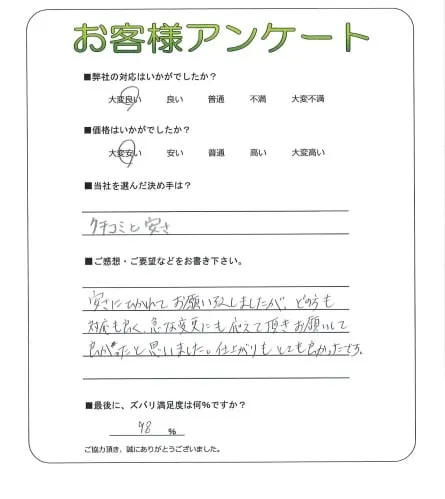 お客様アンケート
■弊社の対応はいかがでしたか？
大変良い　良い　普通　不満　大変不満
■価格はいかがでしたか？
大変安い　安い　普通　高い　大変高い
■当社を選んだ決め手は？
クチコミと安さ
■ご感想・ご要望などをお書き下さい。
安さにひかれてお願い致しましたが、どの方も
対応も良く、急な変更にも応えて頂きお願いして
良かったと思いました。仕上がりもとても良かったです。
■最後に、ズバリ満足度は何%ですか？
98 %
ご協力頂き、誠にありがとうございました。